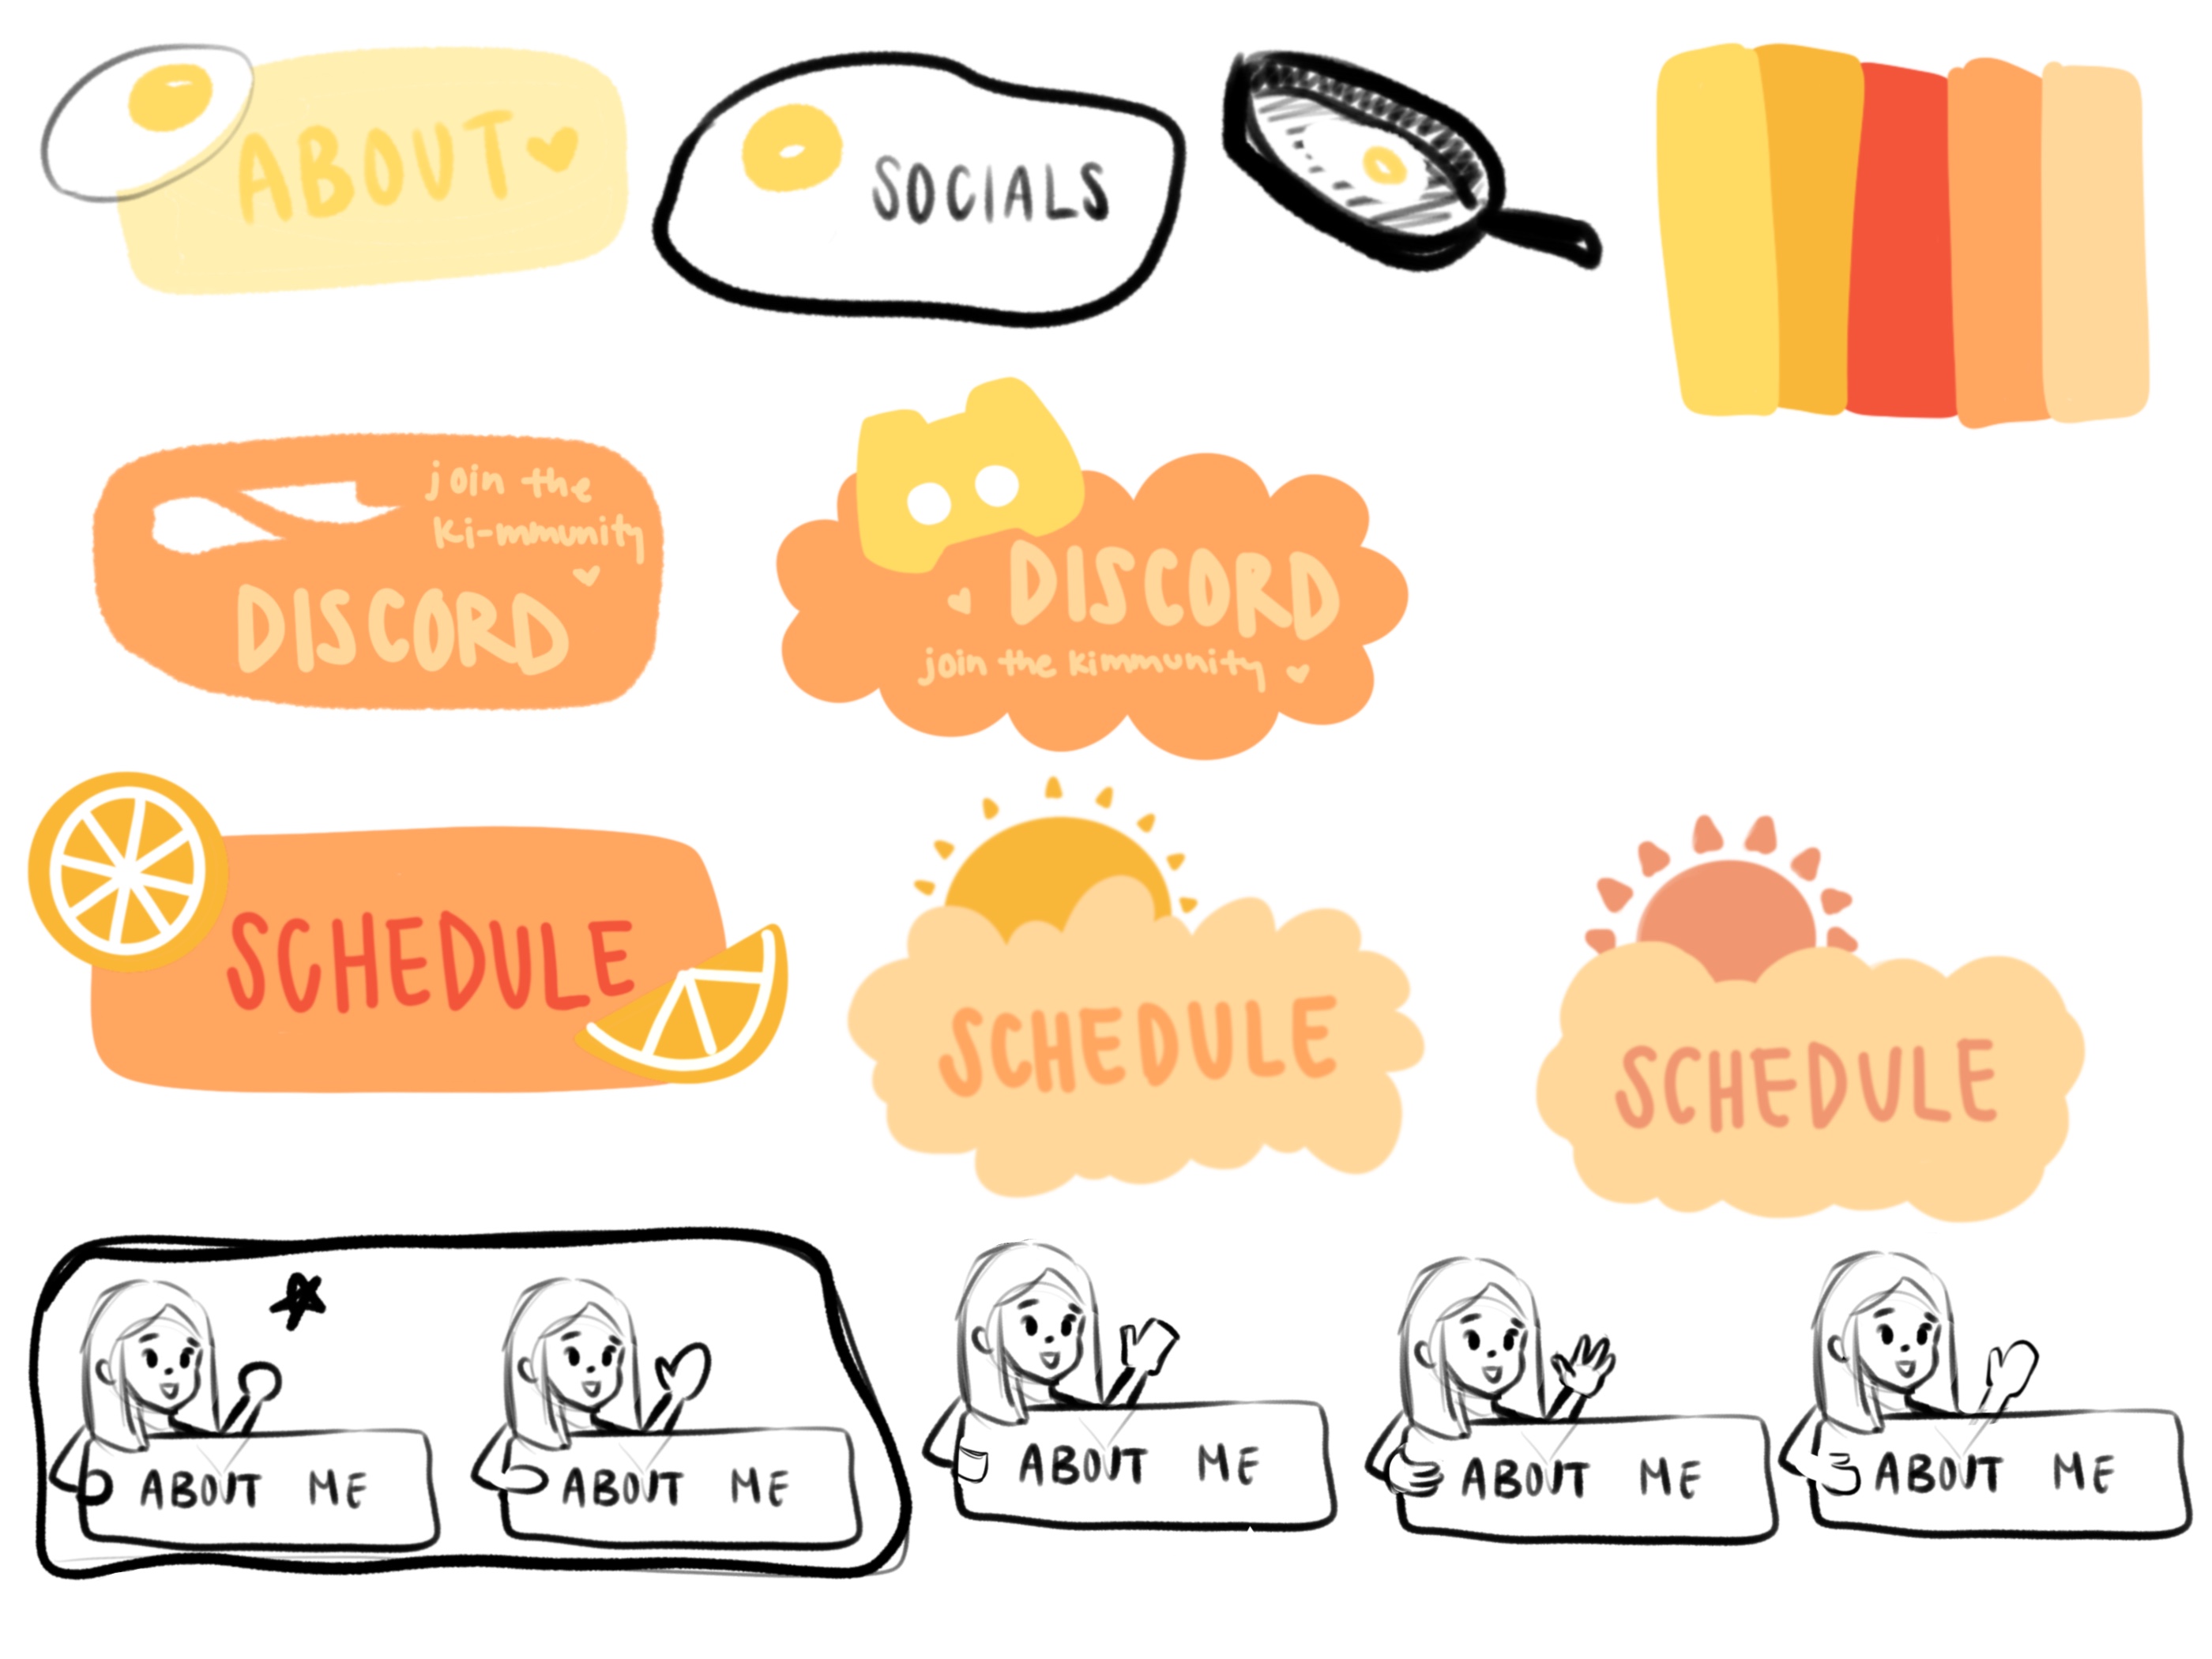 ABOUT
SOCIALS
join the
ki-mmunity
DISCORD
DISCORD
join the kimmunity
SCHEDULE
SCHEDULE
SCHEDULE
ABOUT ME
ABOUT ME
ABOUT ME
ABOUT ME
ABOUT ME